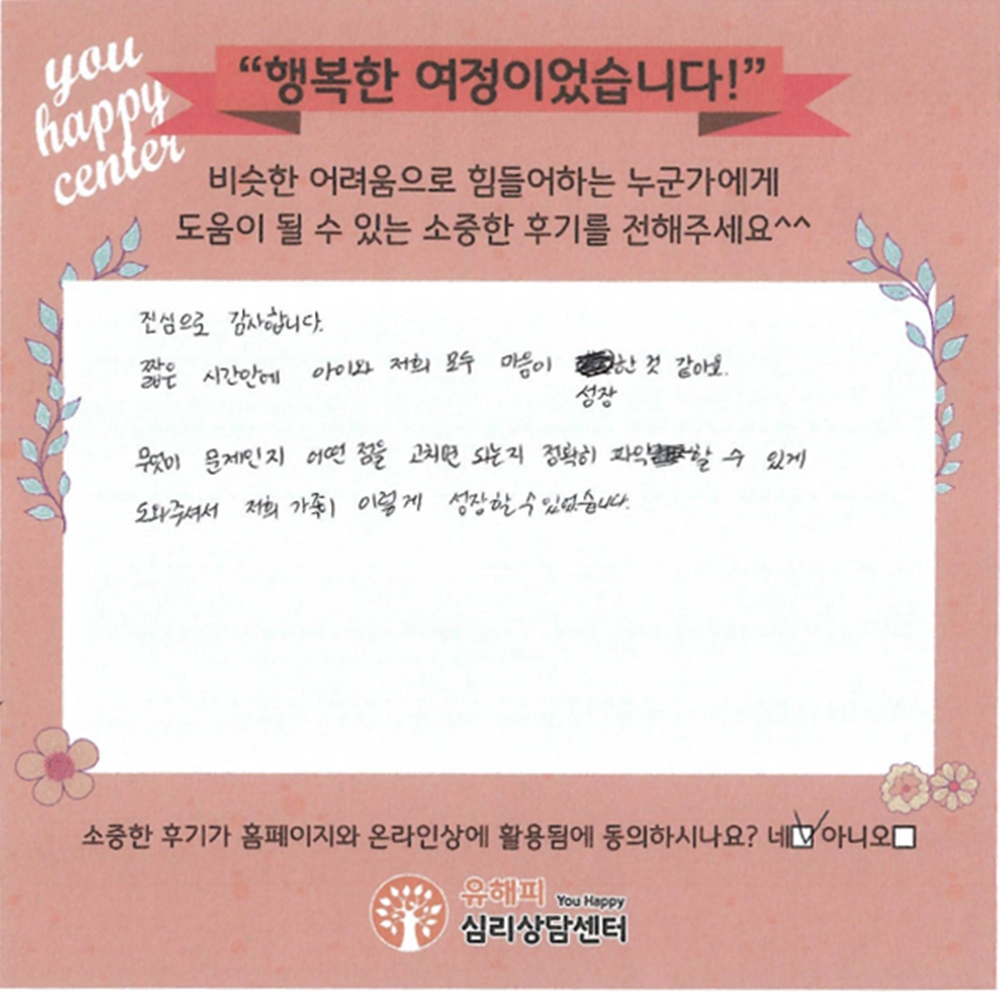 you
happy
center
“행복한 여정이었습니다!”
비슷한 어려움으로 힘들어하는 누군가에게
도움이 될 수 있는 소중한 후기를 전해주세요^^
진심으로 감사합니다.
짧은 시간안에 아이와 저희 모두 마음이 한 것 같아요.
성장
무엇이 문제인지 어떤 점을 고치면 되는지 정확히 파악할 수 있게
도와주셔서 저희 가족이 이렇게 성장할 수 있었습니다.
소중한 후기가 홈페이지와 온라인상에 활용됨에 동의하시나요? 네 아니오
유해피 You Happy
심리상담센터